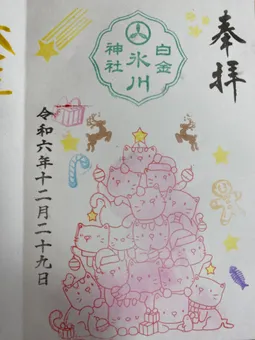 奉拝
白金
氷川
神社
令和六年十二月二十九日